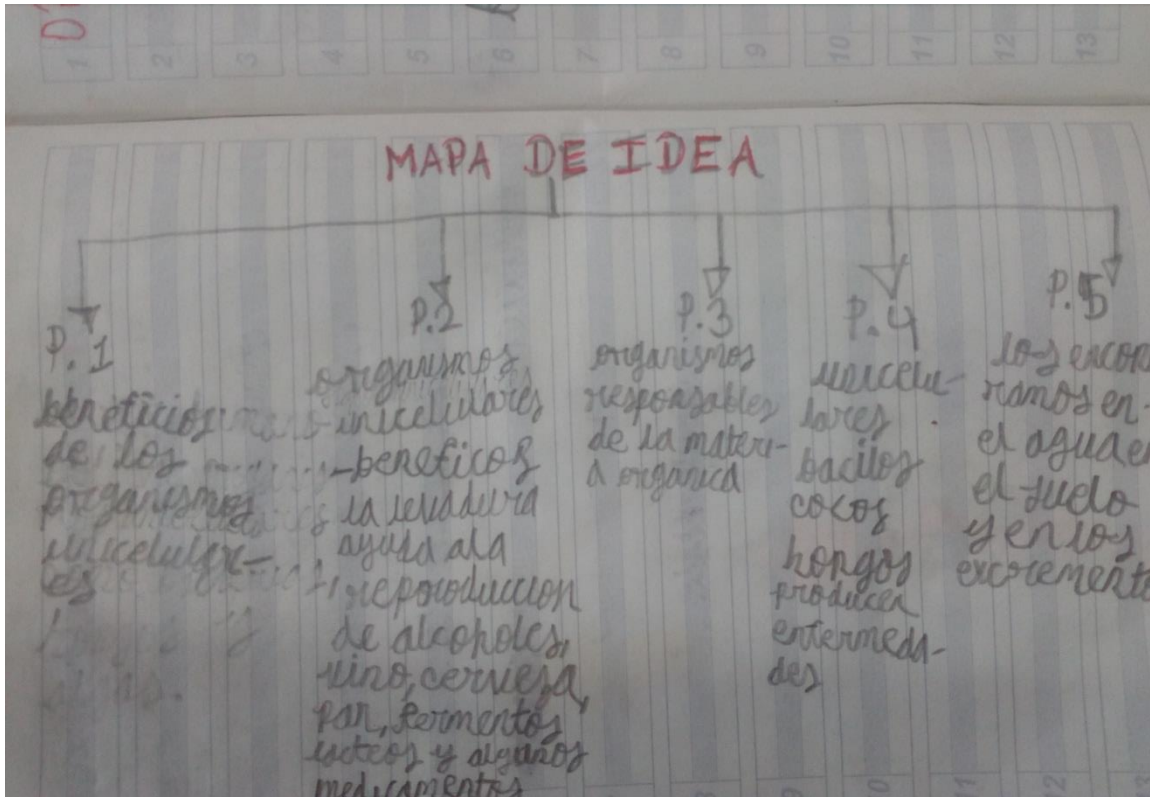 MAPA DE IDEA
P. 1
beneficios
de los
organismos
unicelular-
es
P.2
organismos
unicelulares
-beneficos
la levadura
ayuda ala
reporoduccion
de alcoholes,
vino, cerveza,
pan, fermentos
lacteos y algunos
medicamentos
P.3
organismos
responsables
de la materi-
a organica
P.4
unicelu-
lares
bacilos
cocos
hongos
producen
enfermeda-
des
P.5
los encon
ramos en
el agua en
el suelo
y en los
excremento
1 2 3 4 5 6 7 8 9 10 11 12 13